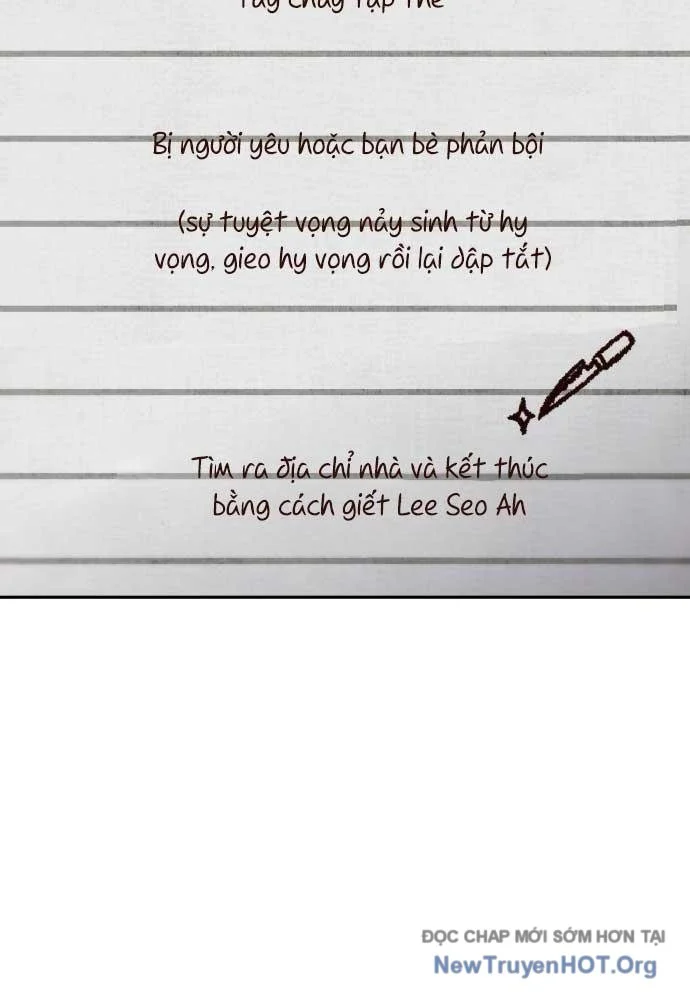 Tẩy chay tập thể
Bị người yêu hoặc bạn bè phản bội
(sự tuyệt vọng nảy sinh từ hy
vọng, gieo hy vọng rồi lại dập tắt)
Tìm ra địa chỉ nhà và kết thúc
bằng cách giết Lee Seo Ah
ĐỌC CHAP MỚI SỚM HƠN TẠI
NewTruyenHOT.Org